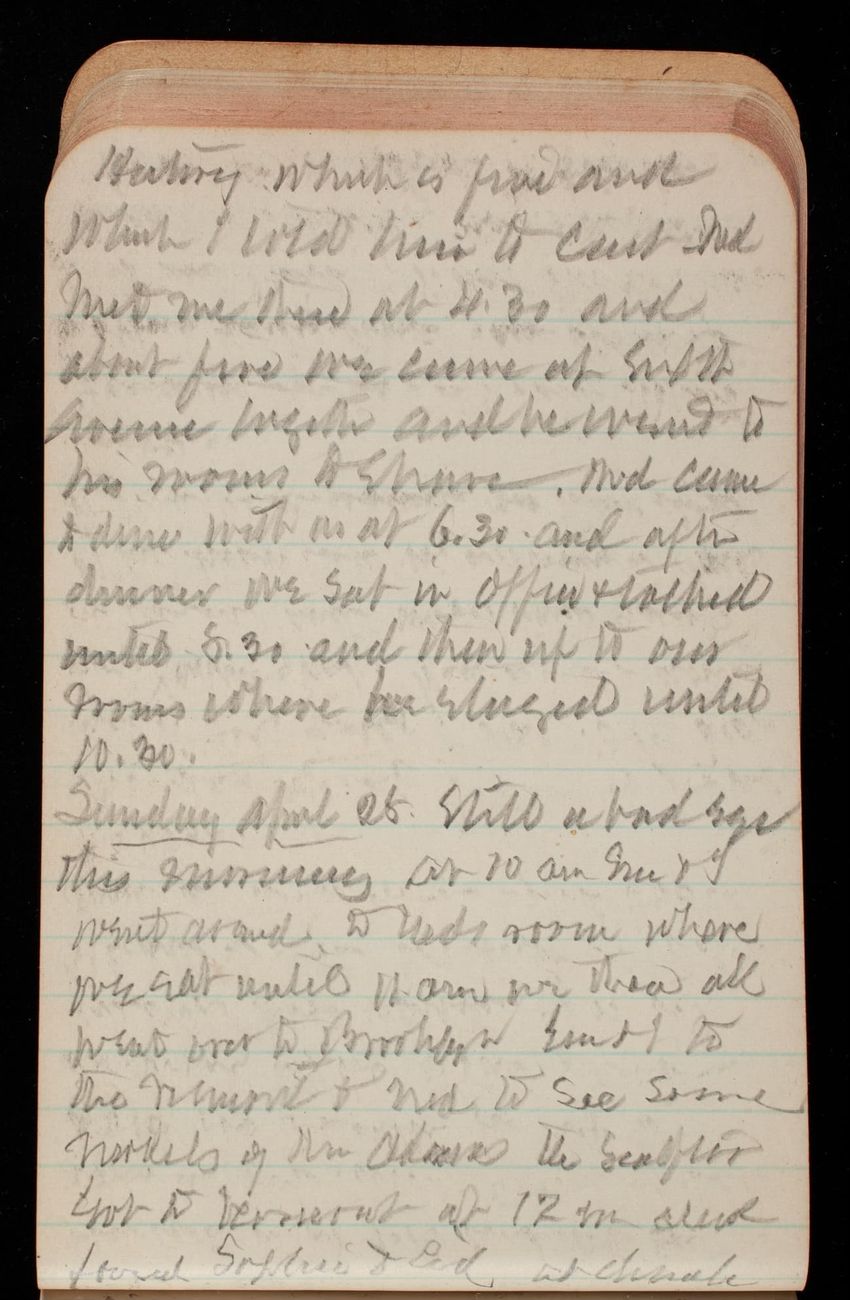 which is fine and
which I told him to cast Ned
Met me there at 4.30 and
about five we came at Sixth
Avenue together and he went to
his rooms to Shave. Ned came
to dine with us at 6.30. and after
dinner we sat in Office & talked
until 8.30 and then up to our
rooms where he stayed until
10.30.
Sunday April 28. Still a bad eye
this morning At 10 am Em & I
went around to Neds room where
we sat until 11 am we then all
went over to Brooklyn Em & I to
the & Ned to see some
Models of Mr Adams the Sculptor
Got to at 12 m and
found Sophie & Ed at